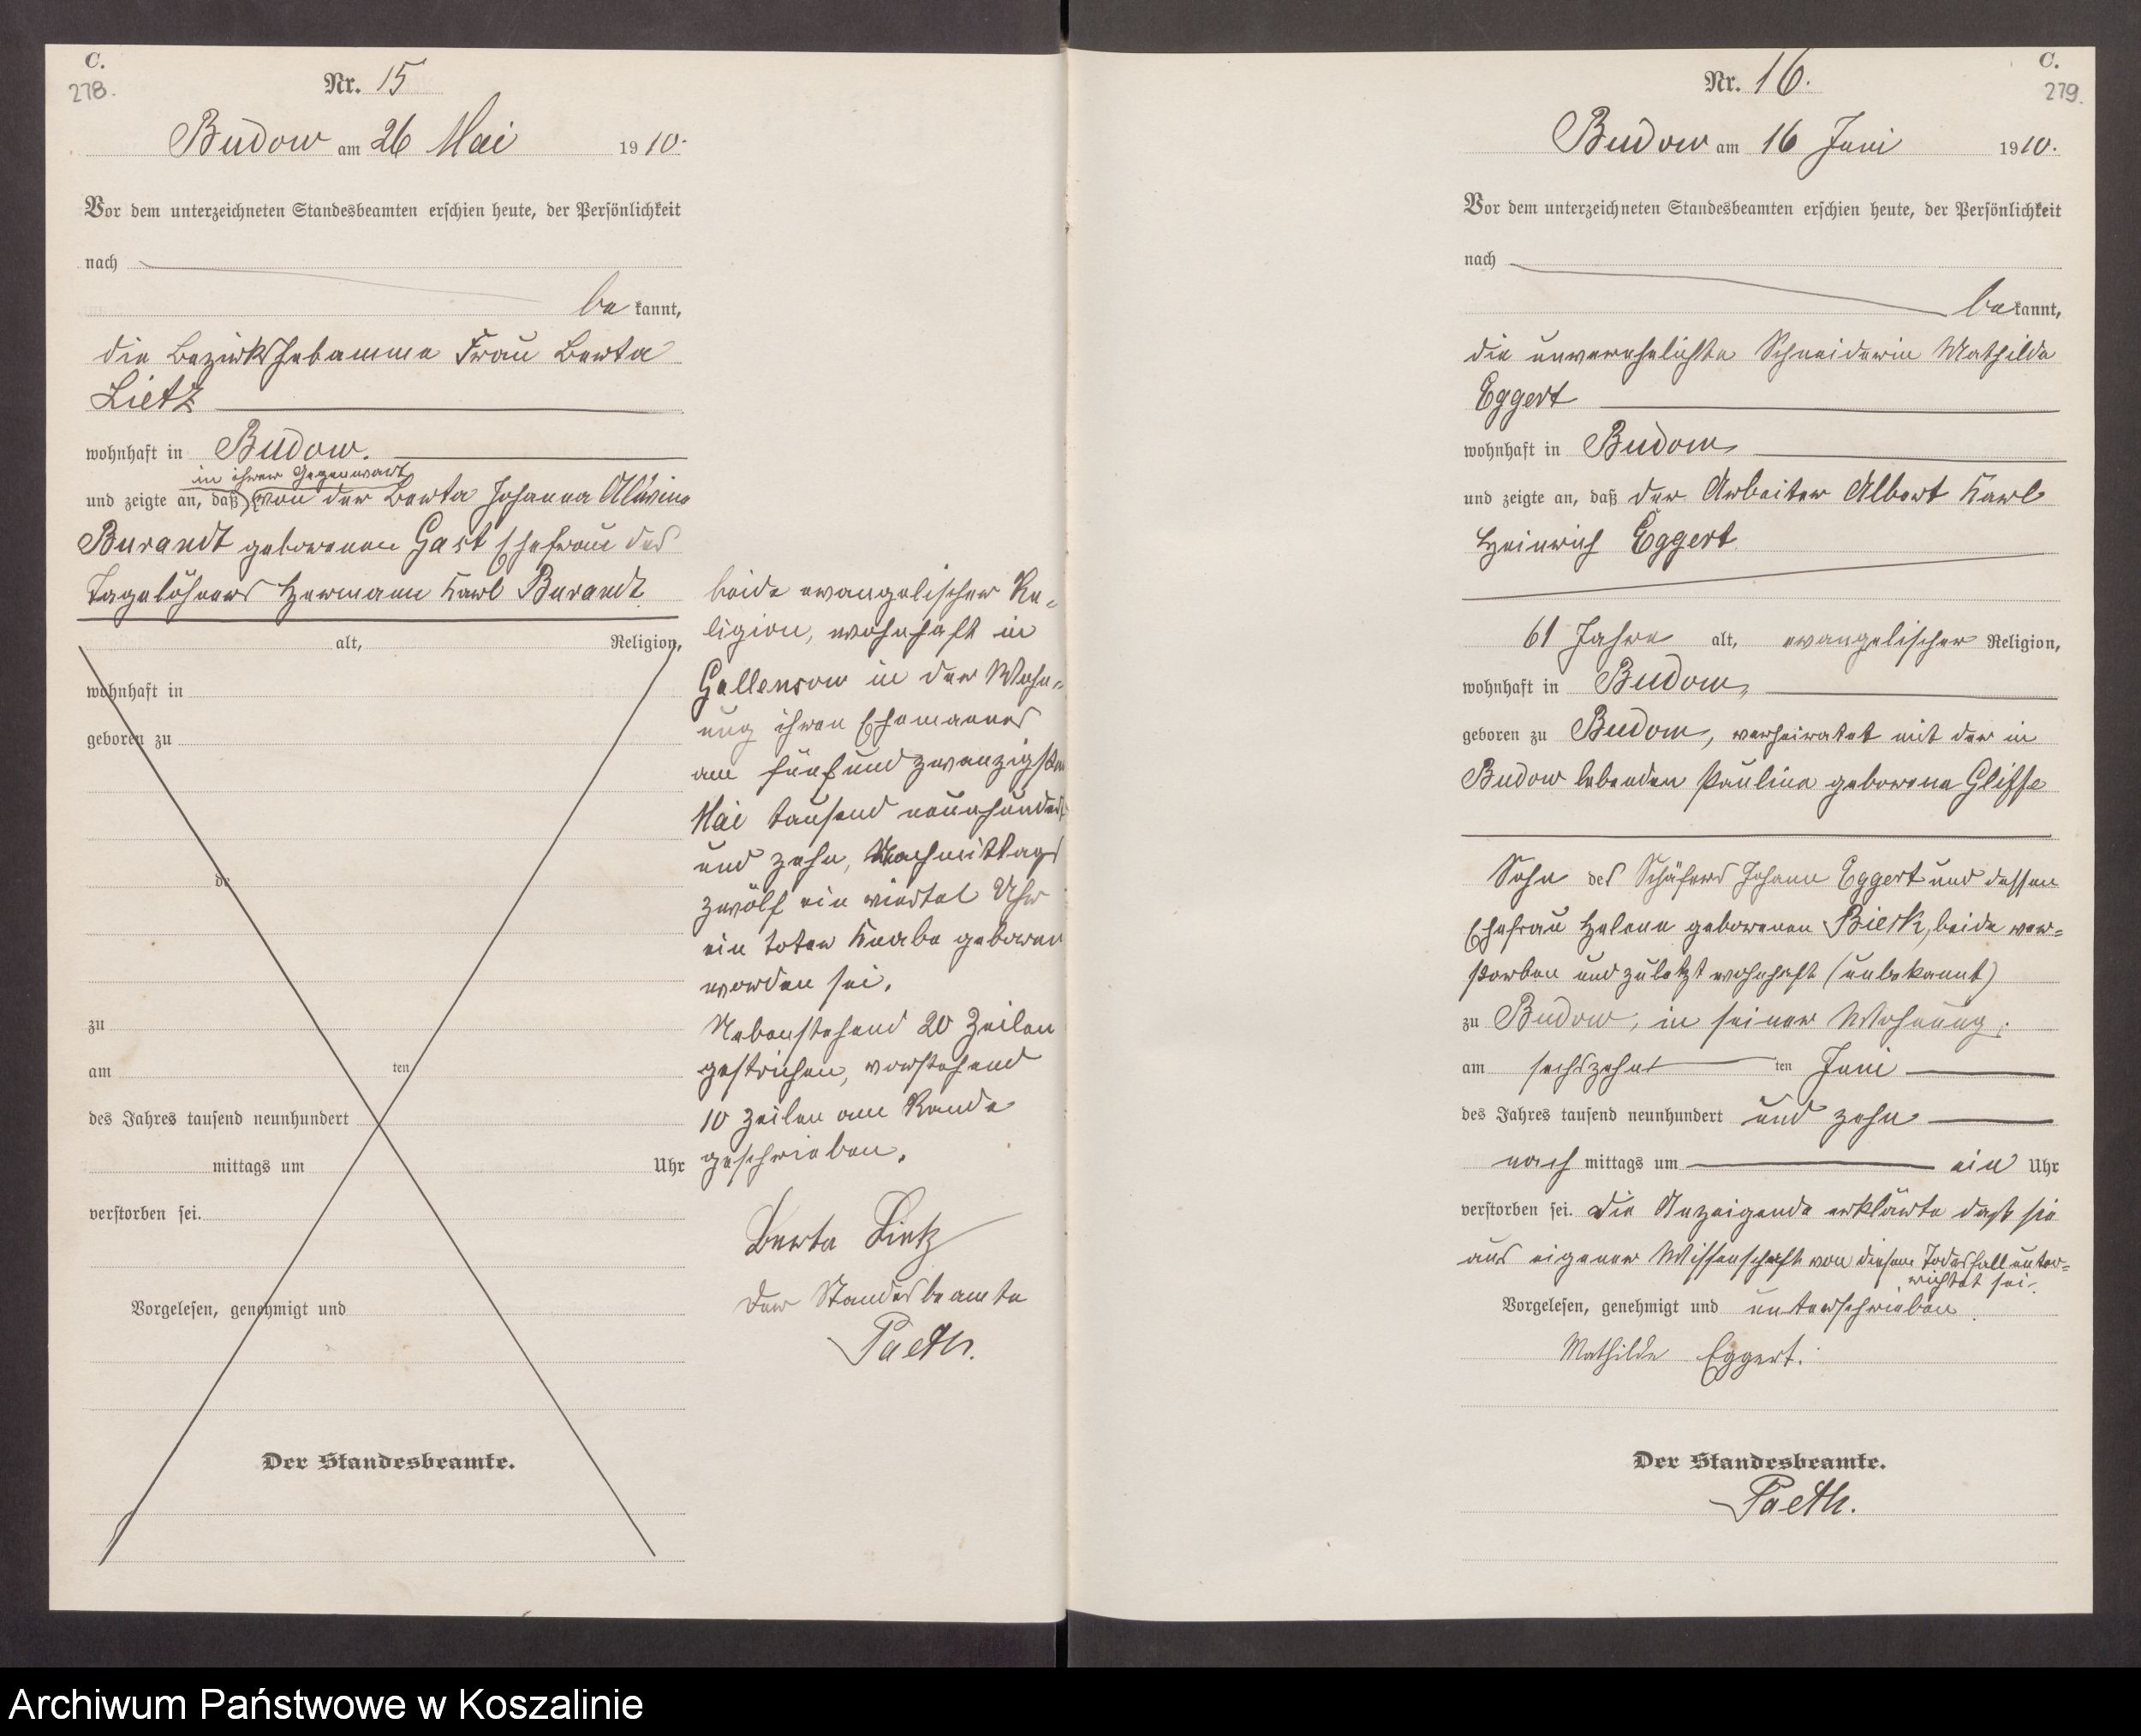 C.
278.
Nr. 15
Budow am 26 Mai 1910.
Vor dem unterzeichneten Standesbeamten erschien heute, der Persönlichkeit
nach
be kannt,
die Bezirkshebamme Frau Berta
Lietz
wohnhaft in Budow.
in ihrer Gegenwart
und zeigte an, daß von der Berta Johanna Alwine
Burandt geborenen Gast Ehefrau des
Tagelöhners Hermann Karl Burandt
alt, Religion,
wohnhaft in
geboren zu
de
zu
am ten
des Jahres tausend neunhundert
mittags um Uhr
verstorben sei.
Vorgelesen, genehmigt und
Der Standesbeamte.
beide evangelischer Re-
ligion, wohnhaft in
Gallensow in der Wohn-
ung ihres Ehemannes
am fünfundzwanzigsten
Mai tausend neunhundert
und zehn, Nachmittags
zwölf ein viertel Uhr
ein toter Knabe geboren
worden sei.
Nebenstehend 20 Zeilen
gestrichen, vorstehend
10 Zeilen am Rande
geschrieben.
Berta Lietz
Der Standesbeamte
Paeth.
C.
279.
Nr. 16.
Budow am 16 Juni 1910.
Vor dem unterzeichneten Standesbeamten erschien heute, der Persönlichkeit
nach
be kannt,
die unverehelichte Schneiderin Mathilde
Eggert
wohnhaft in Budow
und zeigte an, daß der Arbeiter Albert Karl
Heinrich Eggert
61 Jahre alt, evangelischer Religion,
wohnhaft in Budow,
geboren zu Budow, verheiratet mit der in
Budow lebenden Pauline geborene Gliffe
Sohn des Schäfers Johann Eggert und dessen
Ehefrau Helene geborenen Bierk, beide ver-
storben und zuletzt wohnhaft (unbekannt)
zu Budow, in seiner Wohnung,
am sechszehnt ten Juni
des Jahres tausend neunhundert und zehn
nach mittags um ein Uhr
verstorben sei. Die Anzeigende erklärte daß sie
aus eigener Wissenschaft von diesem Todesfall unter-
richtet sei.
Vorgelesen, genehmigt und unterschrieben
Mathilde Eggert.
Der Standesbeamte.
Paeth.
Archiwum Państwowe w Koszalinie